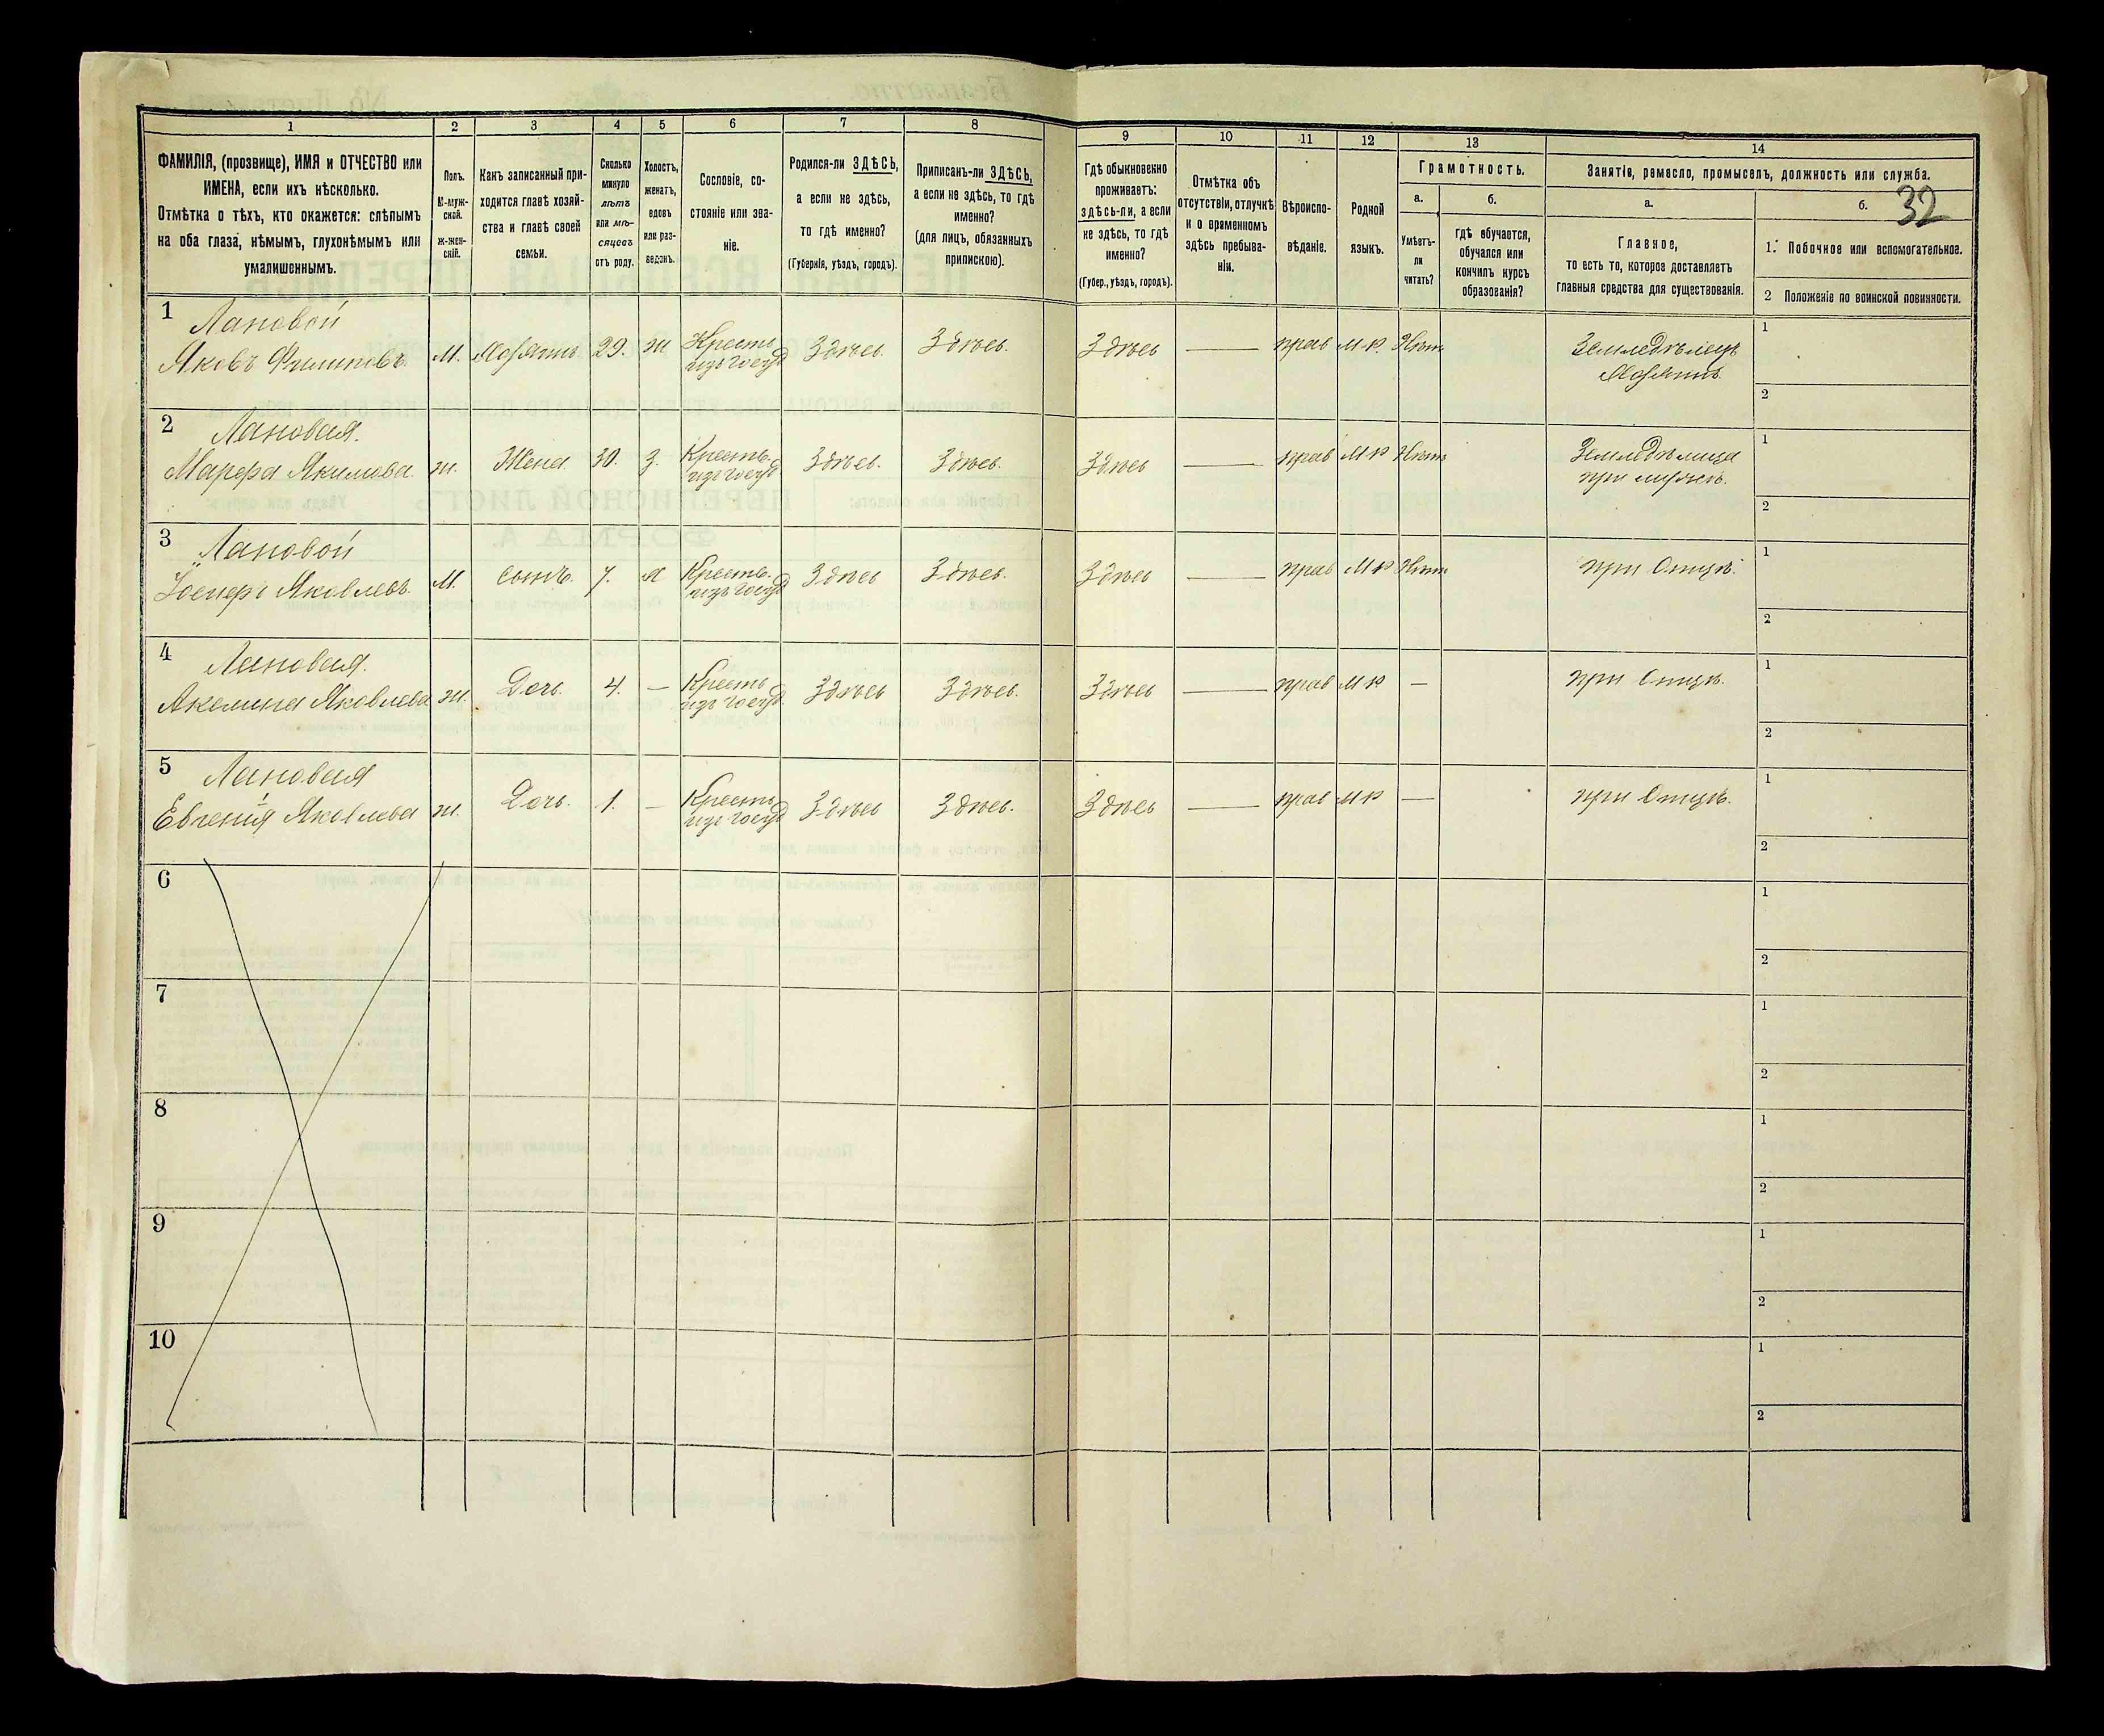 1 2 3 4 5 6 7 8 9 10 11 12 13 14
ФАМИЛІЯ, (прозвище), ИМЯ и ОТЧЕСТВО или
ИМЕНА, если ихъ нѣсколько.
Отмѣтка о тѣхъ, кто окажется: слѣпымъ
на оба глаза, нѣмымъ, глухонѣмымъ или
умалишеннымъ.
Полъ.
М-муж-
ской.
ж-жен-
скій.
Какъ записанный при-
ходится главѣ хозяй-
ства и главѣ своей
семьи.
Сколько
минуло
лѣтъ
или мѣ-
сяцевъ
отъ роду.
Холостъ,
женатъ,
вдовъ
или раз-
веденъ.
Сословіе, со-
стояніе или зва-
ніе.
Родился-ли ЗДѢСЬ,
а если не здѣсь,
то гдѣ именно?
(Губернія, уѣздъ, городъ).
Приписанъ-ли ЗДѢСЬ,
а если не здѣсь, то гдѣ
именно?
(для лицъ, обязанныхъ
припискою).
Гдѣ обыкновенно
проживаетъ:
здѣсь-ли, а если
не здѣсь, то гдѣ
именно?
(Губер., уѣздъ, городъ).
Отмѣтка объ
отсутствіи, отлучкѣ
и о временномъ
здѣсь пребыва-
ніи.
Вѣроиспо-
вѣданіе.
Родной
языкъ.
Грамотность.
а.
Умѣетъ-
ли
читать?
б.
гдѣ обучается,
обучался или
кончилъ курсъ
образованія?
Занятіе, ремесло, промыселъ, должность или служба.
а.
Главное,
то есть то, которое доставляетъ
главныя средства для существованія.
б. 32
1. Побочное или вспомогательное.
2 Положеніе по воинской повинности.
1 Лановой
Яковъ Филиповъ. М. 29. ж Крестъ Здѣсь. Здѣсь. Здѣсь — прав М-р. Нѣтъ Земледѣлецъ 1
2
2 Лановая.
Марфа Якимова. ж. Жена 30. З. Крестъ. Здѣсь. Здѣсь. Здѣсь — прав М р Нѣтъ Земледѣлица 1
при мужѣ.
2
3 Лановой
Іосифъ Яковлевъ. М. Сынъ. 7. Х Крестъ. Здѣсь Здѣсь. Здѣсь — прав М р Нѣтъ при Отцѣ. 1
2
4 Лановая.
Акелина Яковлева ж. Дочь. 4. — Крестъ Здѣсь Здѣсь. Здѣсь — прав М р — при Отцѣ. 1
2
5 Лановая
Евгенія Яковлева ж. Дочь. 1. — Крестъ Здѣсь Здѣсь. Здѣсь — прав М р — при Отцѣ. 1
2
6 1
2
7 1
2
8 1
2
9 1
2
10 1
2